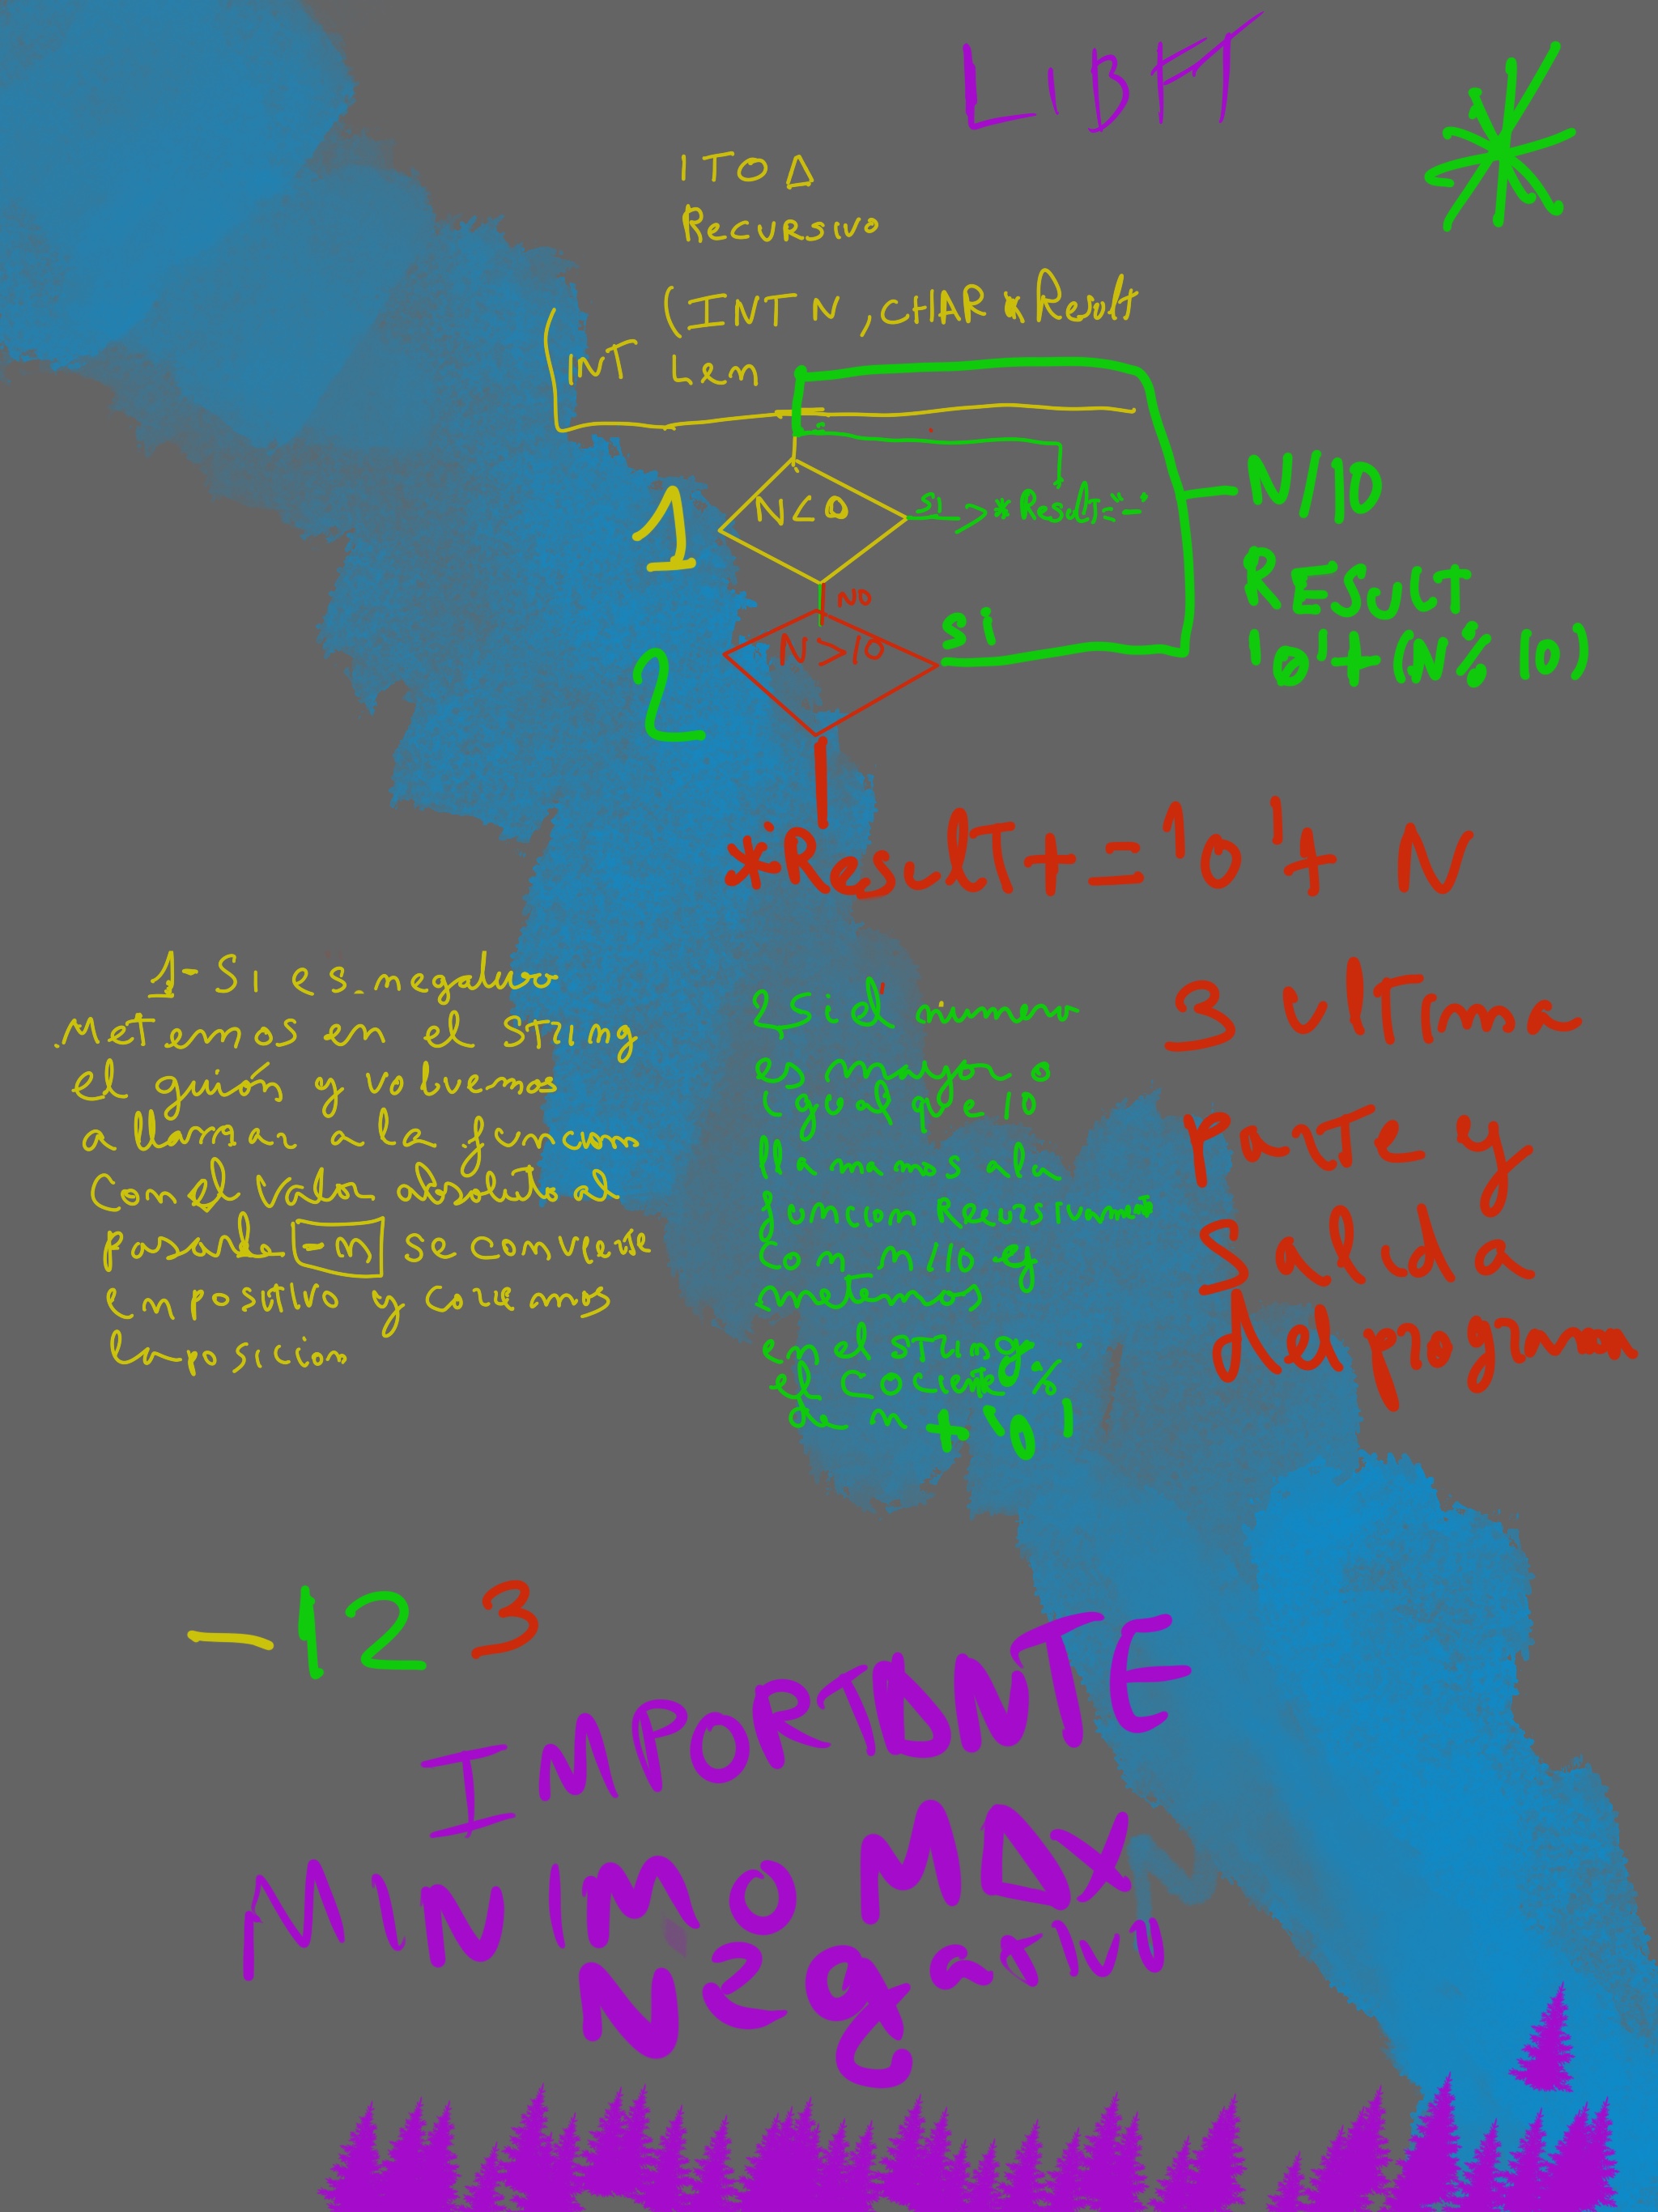 LIBFT
ITOA
Recursivo
(INT N, CHAR *Result
INT Len
1
N<0
si
*Result='-'
N/10
NO
RESULT
'0'+(N%10)
2
N>10
si
*Result+='0'+ N
1- Si es negativo
Metemos en el STRING
el guión y volvemos
a llamar a la funcion
Con el Valor absoluto al
pasarle -n se convierte
en positivo y coremos
la posicion
2 Si el numero
es mayor o
igual que 10
llamamos a la
funcion Recursivamente
Con n/10 y
metemos
en el string
el Cociente %
de n + '0'
3 ultima
parte y
Salida
del programa
-123
IMPORTANTE
MINIMO MAX
Negativo